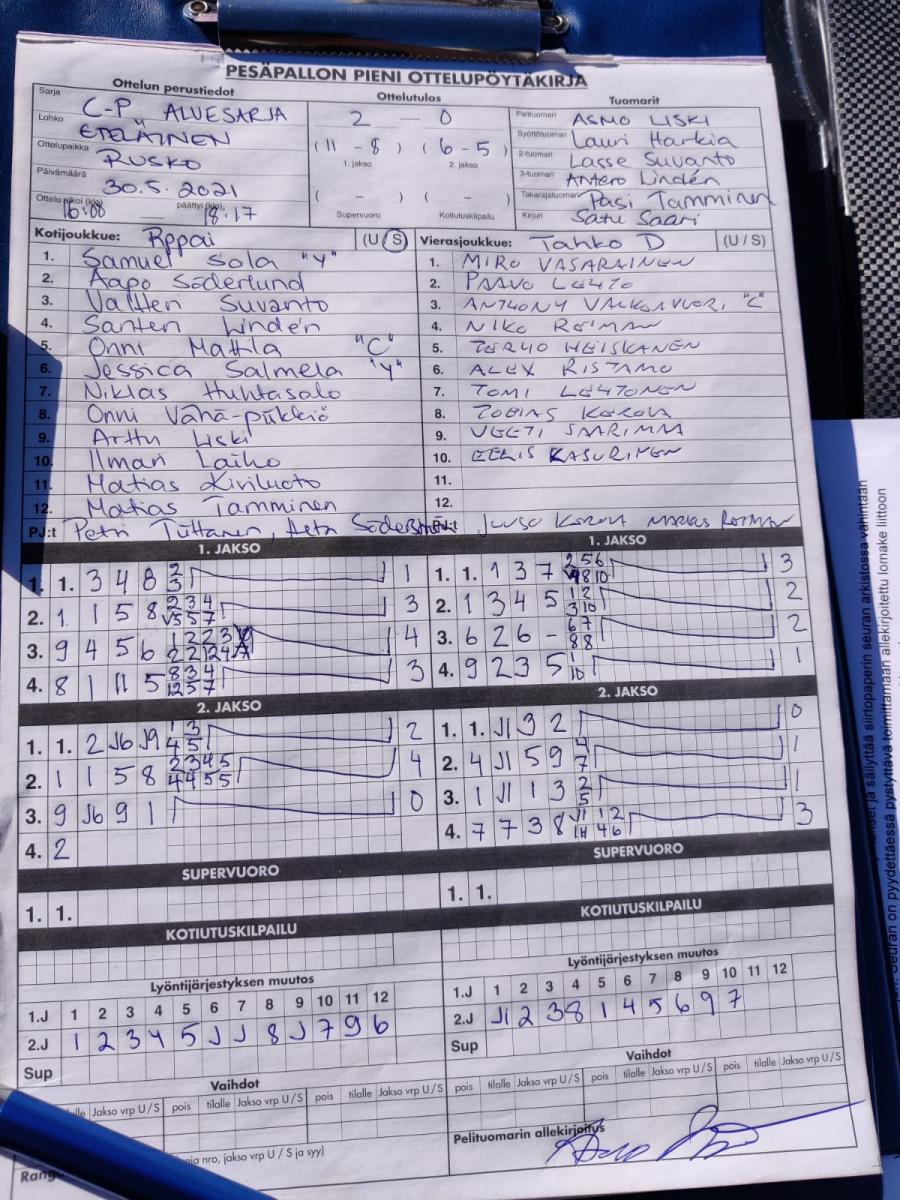 PESÄPALLON PIENI OTTELUPÖYTÄKIRJA
Ottelun perustiedot
Sarja C-P ALUESARJA
Lohko ETELÄINEN
Ottelupaikka RUSKO
Päivämäärä 30.5.2021
Ottelu alkoi (klo) 16:00 päättyi (klo) 18:17
Ottelutulos
2 — 0
( 11 - 8 ) ( 6 - 5 )
1. jakso 2. jakso
( - ) ( - )
Supervuoro Kotiutuskilpailu
Tuomarit
Pelituomari ASMO LISKI
Syöttötuomari Lauri Harkia
2-tuomari Lasse Suvanto
3-tuomari Antero Lindén
Takarajatuomari Pasi Tamminen
Kirjuri Satu Saari
Kotijoukkue: (U / S)
1. Samuel Sola "Y"
2. Aapo Söderlund
3. Valtteri Suvanto
4. Santeri Lindén
5. Onni Mattila "C"
6. Jessica Salmela "Y"
7. Niklas Huhtasalo
8. Onni Vähä-piikkiö
9. Arttu Liski
10. Ilmari Laiho
11. Matias Kiviluoto
12. Matias Tamminen
PJ:t Petri
Vierasjoukkue: Tahko D (U / S)
1. MIRO VASARAINEN
2. PAAVO LEHTO
3. ANTHONY VALKONVUORI, "C"
4. NIKO ROIMAN
5. HEISKANEN
6. ALEX RISTAMO
7. TOMI LEHTONEN
8. TOBIAS KOROLA
9. VEETI SAARIMAA
10. EELIS KASURINEN
11.
12.
PJ:t JUUSO KOROLA MARKUS ROIMAN
1. JAKSO
1. 1. 3 4 8 2 3 1
2. 1 1 5 8 2 3 4 5 5 7 3
3. 9 4 5 6 4
4. 8 1 11 5 8 3 4 12 5 7 3
1. JAKSO
1. 1. 1 3 7 2 5 6 9 8 10 3
2. 1 3 4 5 1 2 3 10 2
3. 6 2 6 - 6 7 8 8 2
4. 9 2 3 5 1 10 1
2. JAKSO
1. 1. 2 J6 J9 1 3 4 5 2
2. 1 1 5 8 2 3 4 5 4 4 5 5 4
3. 9 J6 9 1 0
4. 2
2. JAKSO
1. 1. J1 3 2 0
2. 4 J1 5 9 4 7 1
3. 1 J1 1 3 2 5 1
4. 7 7 3 8 J1 1 2 4 6 3
SUPERVUORO
1. 1.
SUPERVUORO
1. 1.
KOTIUTUSKILPAILU
KOTIUTUSKILPAILU
Lyöntijärjestyksen muutos
1.J 1 2 3 4 5 6 7 8 9 10 11 12
2.J 1 2 3 4 5 J J 8 J 7 9 6
Sup
Lyöntijärjestyksen muutos
1.J 1 2 3 4 5 6 7 8 9 10 11 12
2.J J1 2 3 8 1 4 5 6 9 7
Sup
Vaihdot
tilalle Jakso vrp U / S pois tilalle Jakso vrp U / S pois tilalle Jakso vrp U / S
Vaihdot
pois tilalle Jakso vrp U / S pois tilalle Jakso vrp U / S pois tilalle Jakso vrp U / S
nro, jakso vrp U / S ja syy)
Pelituomarin allekirjoitus
ja säilyttää siirtopaperin seuran arkistossa vähintään
Seuran on pyydettäessä pystyttävä toimittamaan allekirjoitettu lomake liittoon